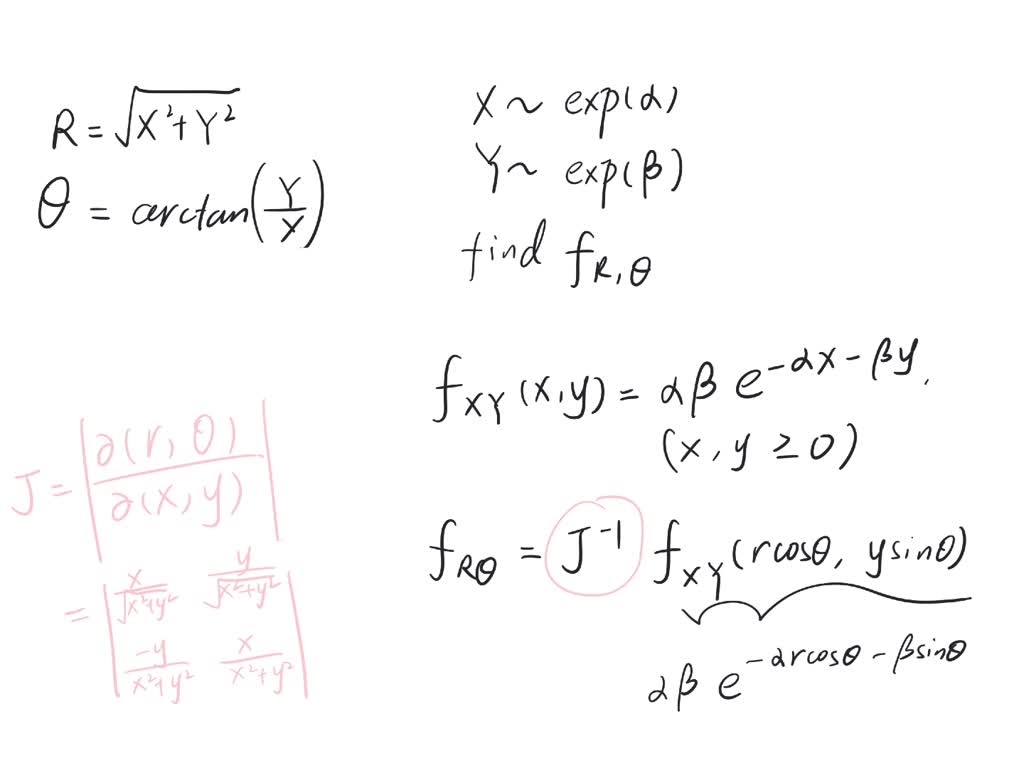 R = √(X²+Y²)
θ = arctan(Y/X)
X ~ exp(α)
Y ~ exp(β)
find f_{R,θ}
f_{XY}(x,y) = αβ e^{-αx-βy}.
(x, y ≥ 0)
J = |∂(r, θ)/∂(x, y)|
= |x/√(x²+y²) y/√(x²+y²)
-y/(x²+y²) x/(x²+y²)|
f_{Rθ} = J⁻¹ f_{XY}(rcosθ, ysinθ)
αβ e^{-αrcosθ-βsinθ}